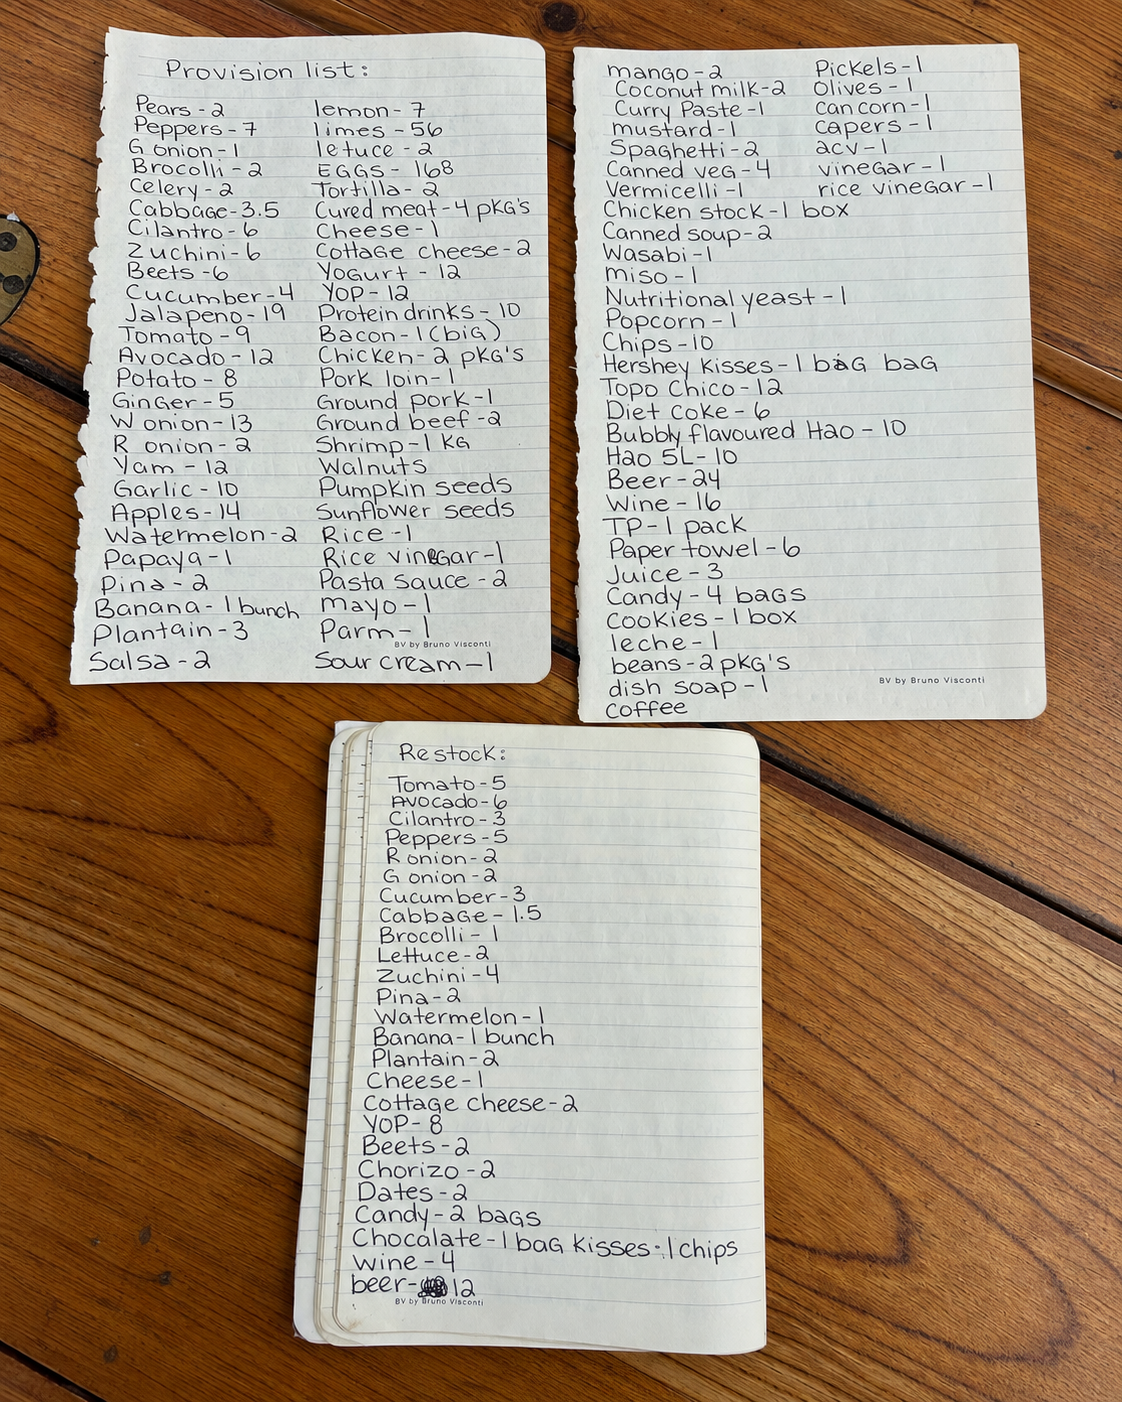 Provision list:
Pears - 2
Peppers - 7
G onion - 1
Brocolli - 2
Celery - 2
Cabbage - 3.5
Cilantro - 6
Zuchini - 6
Beets - 6
Cucumber - 4
Jalapeno - 19
Tomato - 9
Avocado - 12
Potato - 8
Ginger - 5
W onion - 13
R onion - 2
Yam - 12
Garlic - 10
Apples - 14
Watermelon - 2
Papaya - 1
Pina - 2
Banana - 1 bunch
Plantain - 3
Salsa - 2
lemon - 7
limes - 56
letuce - 2
EGGS - 168
Tortilla - 2
Cured meat - 4 pkg's
Cheese - 1
Cottage cheese - 2
Yogurt - 12
YOP - 12
Protein drinks - 10
Bacon - 1 (big)
Chicken - 2 pkg's
Pork loin - 1
Ground pork - 1
Ground beef - 2
Shrimp - 1 KG
Walnuts
Pumpkin seeds
Sunflower seeds
Rice - 1
Rice vinegar - 1
Pasta sauce - 2
mayo - 1
Parm - 1
BV by Bruno Visconti
Sour cream - 1
mango - 2
Coconut milk - 2
Curry Paste - 1
mustard - 1
Spaghetti - 2
Canned veg - 4
Vermicelli - 1
Chicken stock - 1 box
Canned soup - 2
Wasabi - 1
miso - 1
Nutritional yeast - 1
Popcorn - 1
Chips - 10
Hershey Kisses - 1 bag bag
Topo Chico - 12
Diet Coke - 6
Bubbly flavoured H2O - 10
H2O 5L - 10
Beer - 24
Wine - 16
TP - 1 pack
Paper towel - 6
Juice - 3
Candy - 4 bags
Cookies - 1 box
leche - 1
beans - 2 pkg's
dish soap - 1
coffee
Pickels - 1
Olives - 1
Can corn - 1
capers - 1
acv - 1
vinegar - 1
rice vinegar - 1
BV by Bruno Visconti
Restock:
Tomato - 5
Avocado - 6
Cilantro - 3
Peppers - 5
R onion - 2
G onion - 2
Cucumber - 3
Cabbage - 1.5
Brocolli - 1
Lettuce - 2
Zuchini - 4
Pina - 2
Watermelon - 1
Banana - 1 bunch
Plantain - 2
Cheese - 1
Cottage cheese - 2
YOP - 8
Beets - 2
Chorizo - 2
Dates - 2
Candy - 2 bags
Chocalate - 1 bag kisses - 1 chips
wine - 4
beer - 12
BV by Bruno Visconti